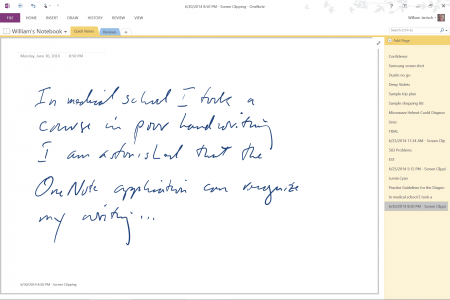 6/30/2014 8:50 PM - Screen Clipping - OneNote
FILE HOME INSERT DRAW HISTORY REVIEW VIEW
William's Notebook Quick Notes
Search
Add Page
Monday, June 30, 2014 8:50 PM
In medical school I took a
course in poor handwriting
I am astonished that the
OneNote application can recognize
my writing...
6/30/2014 8:50 PM - Screen Clipping
Confidence
Samsung screen shot
Dustin no go
Deep Notists
Sample trip plan
Sample shopping list
Microwave Helmet Could Diagnos
FINAL
6/25/2014 11:34 AM - Screen Clip
SID Problems
6/25/2014 5:12 PM - Screen Clippi
Practice Guidelines for the Diagno
In medical school I took a
6/30/2014 8:50 PM - Screen Clippi